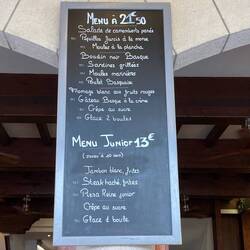 Menu à 21€50
Salade de camemberts panés
ou Piquillos farcis à la morue
ou Moules à la plancha
Boudin noir Basque
ou Sardines grillées
ou Moules marinières
ou Poulet Basquaise
Fromage blanc aux fruits rouges
ou Gâteau Basque à la crème
ou Crêpe au sucre
ou Glace 2 boules
Menu Junior 13€
Jambon blanc, frites
ou Steak haché, frites
ou Pizza Reine junior
Crêpe au sucre
ou Glace 1 boule